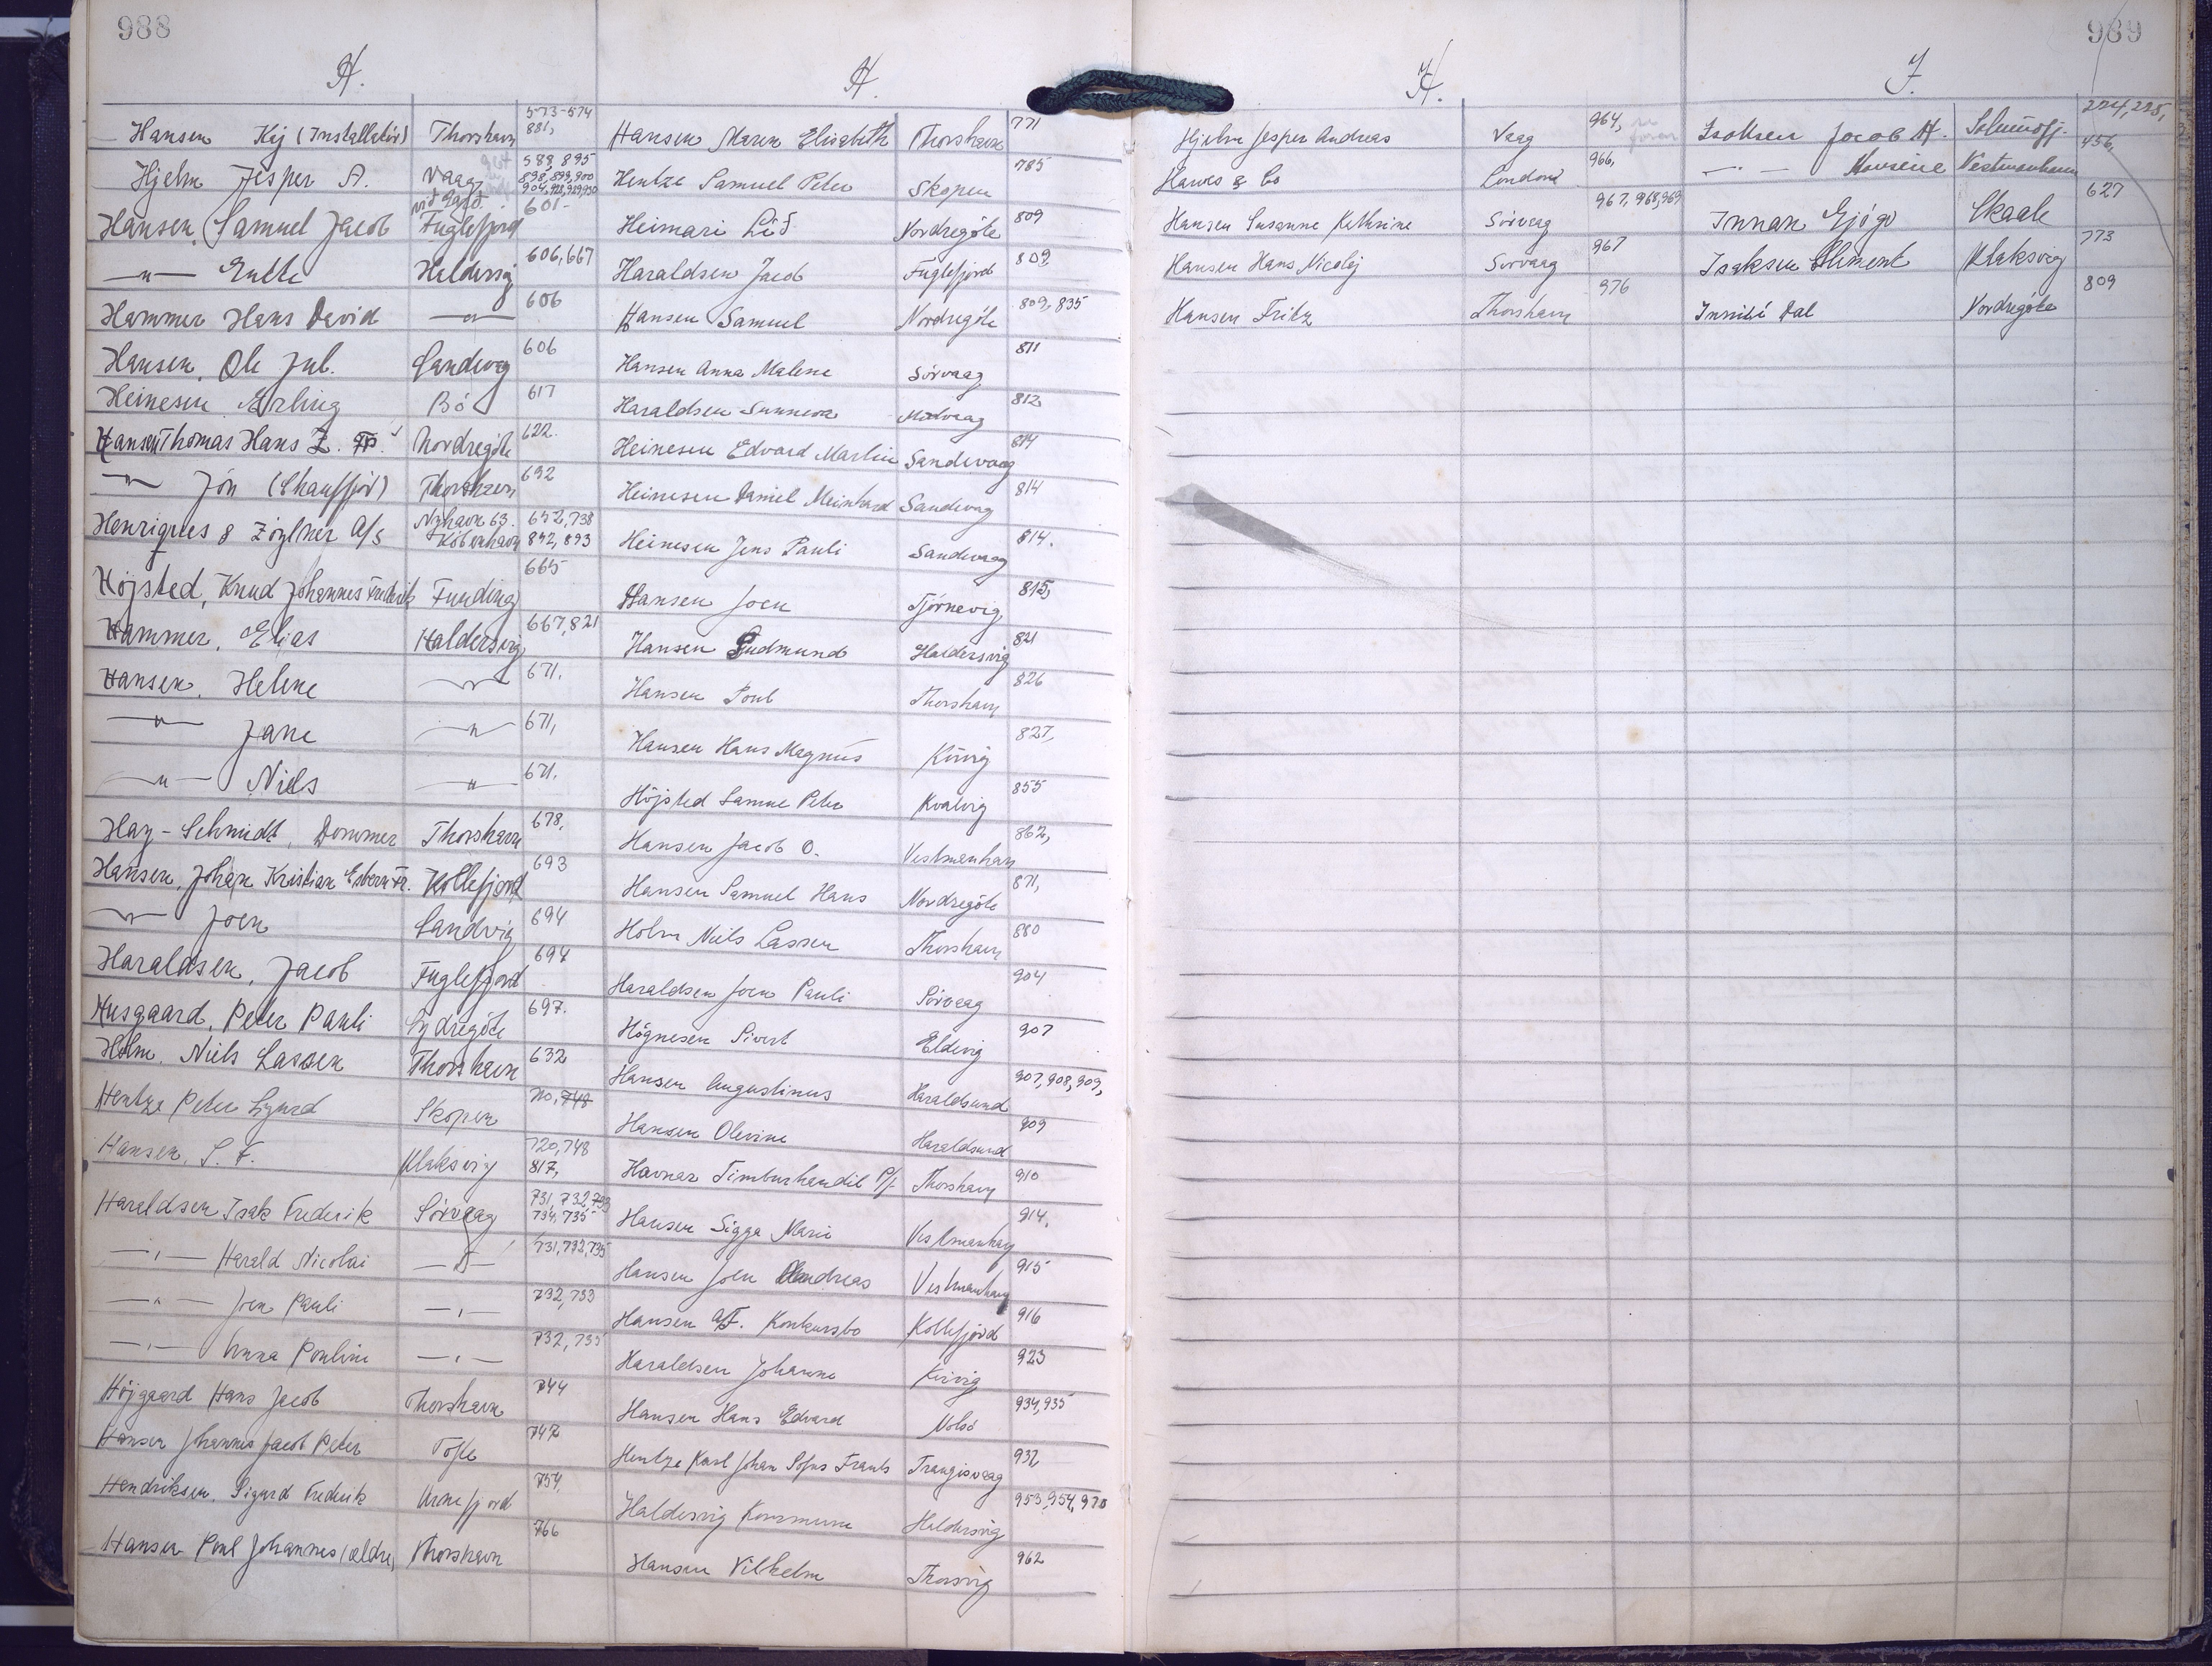 988
H.
Hansen Kej (Installatör) Thorshavn 573-574 881,
Hjelm Jesper A. Vaag 588, 895 898, 899, 900
Hansen, Samuel Jacob Fuglefjord 601-
—"— Haldersvig 606, 667
Hammer Hans David —"— 606
Hansen, Ole Jul. Sandvag 606
Heinesen Erling Bö 617
Hansen Thomas Hans Z. Nordregöte 622.
—"— Jón (Chauffför) Thorshavn 692
Henriques & Zöylner A/S Nyhavn 63. Köbenhavn 652, 738 892, 893
Höjsted, Knud Johannes Frederik Funding 665
Hammer, Elias Haldersvig 667, 821
Hansen, Helene —"— 671.
—"— Jane —"— 671,
—"— Niels —"— 671.
Hay-Schmidt, Dommer Thorshavn 678.
Hansen, Johan Kristian Esbern Fr. Kollefjord 693
—"— Joen Sandvig 694
Haraldsen, Jacob Fuglefjord 694
Husgaard, Peter Pauli Sydregöte 697.
Holm, Niels Lassen Thorshavn 632
Hentze Peter Sigurd Skopen 710, 748
Hansen, S. F. Klaksvig 720, 748 817,
Haraldsen Isak Frederik Sörvaag 731, 732, 733 734, 735
—"— Harald Nicolai —"— 731, 732, 735
—"— Joen Pauli —"— 732, 733
—"— Anna Pouline —"— 732, 735
Höjgaard Hans Jacob Thorshavn 744
Hansen Johannes Jacob Peter Tofte 742
Hendriksen, Sigurd Frederik Arnefjord 754,
Hansen Poul Johannes (ældre) Thorshavn 766
H.
Hansen Maren Elisabeth Thorshavn 771
Hentze Samuel Peter Skopen 785
Heimari Lið Nordregöte 809
Haraldsen Jacob Fuglefjord 809
Hansen Samuel Nordregöte 809, 835
Hansen Anna Malene Sörvaag 811
Haraldsen Sunneva Midvaag 812
Heinesen Edvard Martin Sandevaag 814
Heinesen Daniel Meinhard Sandevag 814
Heinesen Jens Pauli Sandevaag 814.
Hansen Joen Tjörnevig 815,
Hansen Gudmund Haldersvig 821
Hansen Poul Thorshavn 826
Hansen Hans Magnus Kvivig 827,
Höjsted Samue Peter Kvalvig 855
Hansen Jacob O. Vestmanhavn 862,
Hansen Samuel Hans Nordregöte 871,
Holm Niels Lassen Thorshavn 880
Haraldsen Joen Pauli Sörvaag 904
Högnesen Sivert Eldevig 907
Hansen Augustinus Haraldsund 907, 908, 909,
Hansen Olevine Haraldsund 909
Havnar Timburhandil P/f Thorshavn 910
Hansen Sigga Marie Vestmanhavn 914,
Hansen Joen Andreas Vestmanhavn 915
Hansen Konkursbo Kollefjord 916
Haraldsen Johanne Kvivig 923
Hansen Hans Edvard Nolsö 934, 935
Hentze Karl Johan Sofus Frants Trangisvaag 932
Haldersvig Kommune Haldersvig 953, 954, 970
Hansen Vilhelm Thorsvig 962
989
H.
Hjelm Jesper Andreas Vaag 964,
Hawes & Co London 966,
Hansen Susanne Kathrine Sörvaag 967, 968, 969
Hansen Hans Nicolej Sorvaag 967
Hansen Fritz Thorshavn 976
I.
Isaksen Jacob H. Solmundfj. 224, 225,
—"— Maurine Vestmanhavn 456,
Innan Gjógv Skaale 627
Isaksen Climent Klaksvig 773
Inniní Dal Nordregöte 809